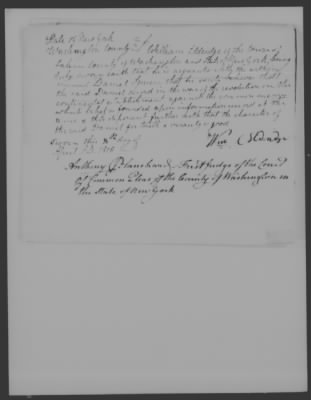 State of New York
Washington County ss William Eldredge of the Town of
Salem County of Washington and State of New York, being
duly sworn saith that he is acquainted with the within
named Daniel that he verily believes that
the said Daniel served in the war of the revolution on the
continental establishment against the common enemy
which belief is founded upon information most at the
time & this deponent further saith that the character of
the said Daniel for truth & veracity is good
Sworn this 8th day of
April AD 1818 Wm Eldredge
Anthony I Blanchard First Judge of the Court
of Common Pleas of the County of Washington in
the State of New York